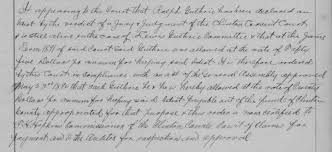 It appearing to the Court that Ralph Guthrie has been declared an
Idiot by the verdict of a Jury & judgment of the Clinton Circuit Court
is still alive in the care of Guthrie Committee & that at the June
Term 1879 of said Court said Guthrie was allowed at the rate of Fifty
five Dollars per annum for keeping said Idiot. It is therefore ordered
by this Court in compliance with an act of the General Assembly approved
May 23rd 18 that said Guthrie be now hereby allowed at the rate of Twenty
Dollars per annum for keeping said Idiot payable out of the funds of Clinton
County appropriated for that purpose & this order is now certified to
Hopkins Commissioner of the Clinton County Court of Claims for
payment and to the Auditor for inspection and approval